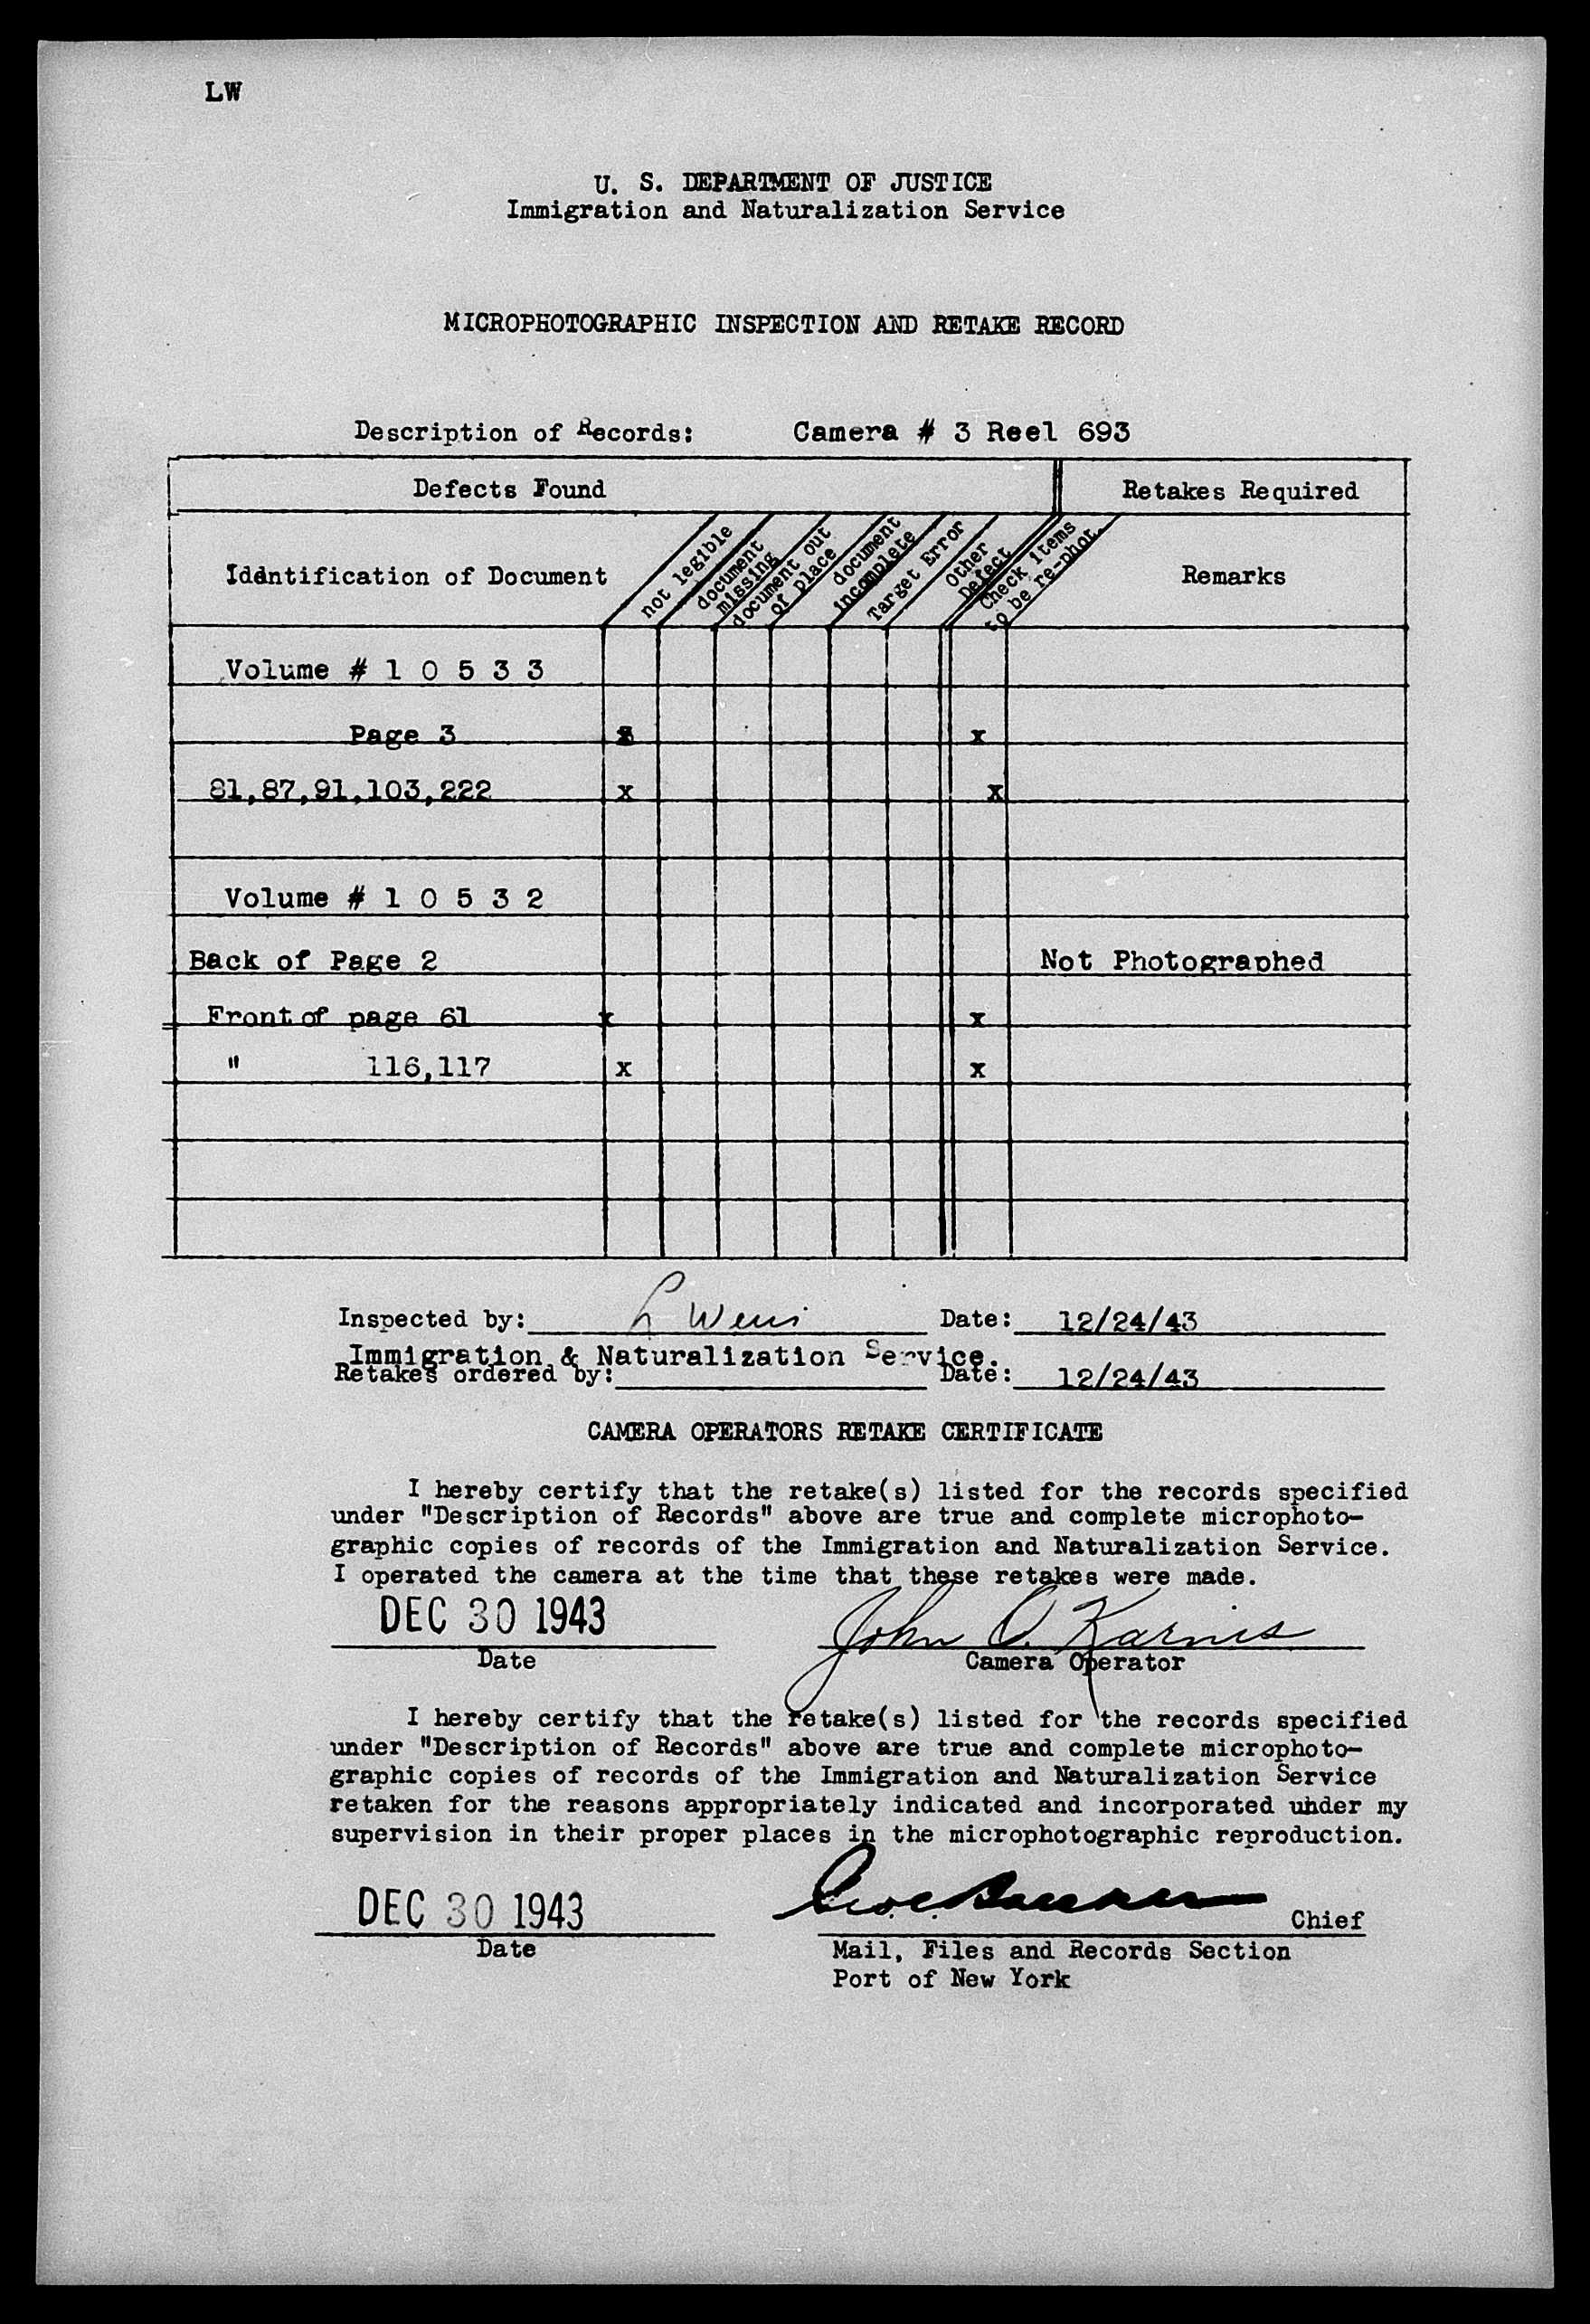 LW
U. S. DEPARTMENT OF JUSTICE
Immigration and Naturalization Service
MICROPHOTOGRAPHIC INSPECTION AND RETAKE RECORD
Description of Records: Camera # 3 Reel 693
Defects Found Retakes Required
Identification of Document not legible document missing document out of place document incomplete Target Error Other Defect Check items to be re-phot. Remarks
Volume # 1 0 5 3 3
Page 3 x x
81,87,91,103,222 x x
Volume # 1 0 5 3 2
Back of Page 2 Not Photographed
Front of page 61 x x
" 116,117 x x
Inspected by: L Date: 12/24/43
Immigration & Naturalization Service.
Retakes ordered by: Date: 12/24/43
CAMERA OPERATORS RETAKE CERTIFICATE
I hereby certify that the retake(s) listed for the records specified
under "Description of Records" above are true and complete microphoto-
graphic copies of records of the Immigration and Naturalization Service.
I operated the camera at the time that these retakes were made.
DEC 30 1943 John O. Karnis
Date Camera Operator
I hereby certify that the retake(s) listed for the records specified
under "Description of Records" above are true and complete microphoto-
graphic copies of records of the Immigration and Naturalization Service
retaken for the reasons appropriately indicated and incorporated under my
supervision in their proper places in the microphotographic reproduction.
DEC 30 1943 Chief
Date Mail, Files and Records Section
Port of New York